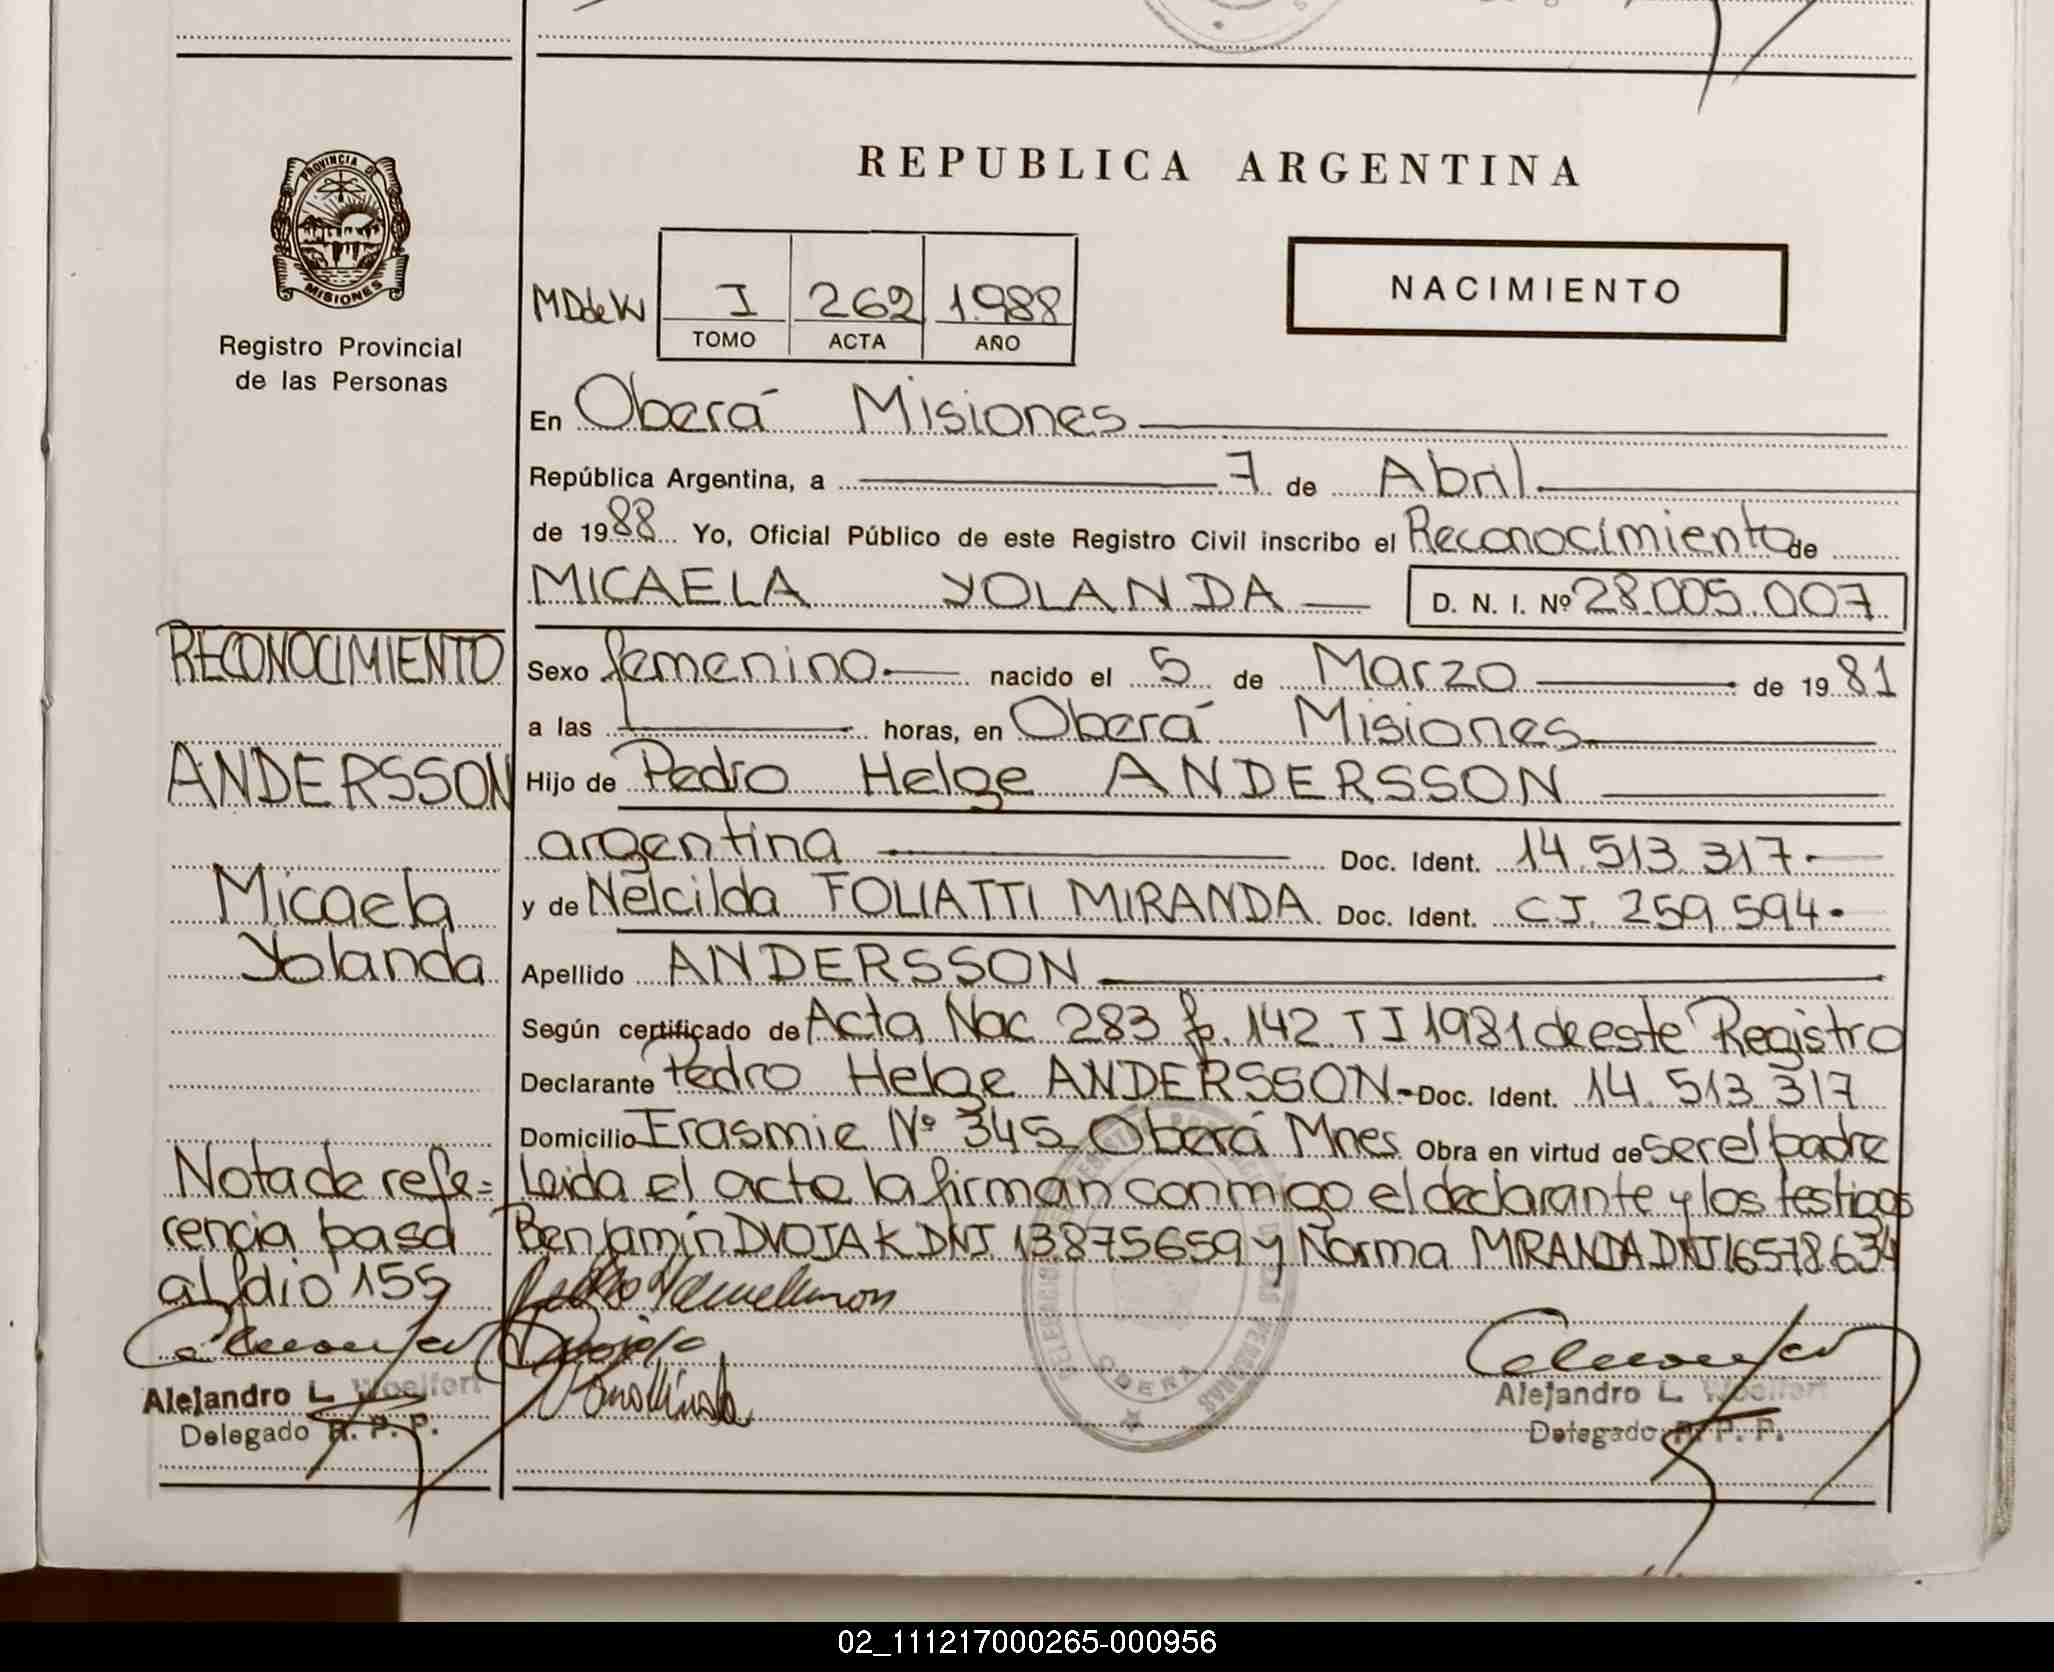 PROVINCIA DE
MISIONES
Registro Provincial
de las Personas
REPUBLICA ARGENTINA
MDdeW
I 262 1.988
TOMO ACTA AÑO
NACIMIENTO
En Oberá Misiones
República Argentina, a 7 de Abril
de 1988 Yo, Oficial Público de este Registro Civil inscribo el Reconocimiento de
MICAELA YOLANDA D. N. I. Nº 28.005.007
Sexo femenino nacido el 5 de Marzo de 1981
a las horas, en Oberá Misiones
Hijo de Pedro Helge ANDERSSON
argentina Doc. Ident. 14.513.317.
y de Nelcilda FOLIATTI MIRANDA Doc. Ident. C.I. 259.594.
Apellido ANDERSSON
Según certificado de Acta Nac 283 f. 142 T I 1981 de este Registro
Declarante Pedro Helge ANDERSSON- Doc. Ident. 14.513.317
Domicilio Erasmie Nº 345 Oberá Mnes Obra en virtud de ser el padre
Leida el acta la firman conmigo el declarante y los testigos
Benjamín DVOJAK DNI 13875659 y Norma MIRANDA DNI 16578634
RECONOCIMIENTO
ANDERSSON
Micaela
Yolanda
Nota de refe=
rencia pasa
al folio 155
Alejandro L. Woelfert
Delegado R. P. P.
OBERA
Alejandro L. Woelfert
Delegado R. P. P.
02_111217000265-000956